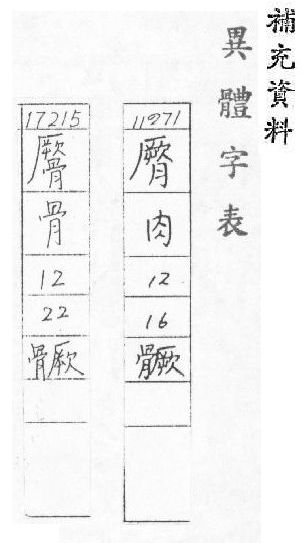 補充資料
異體字表
11971
肉
12
16
17215
骨
12
22